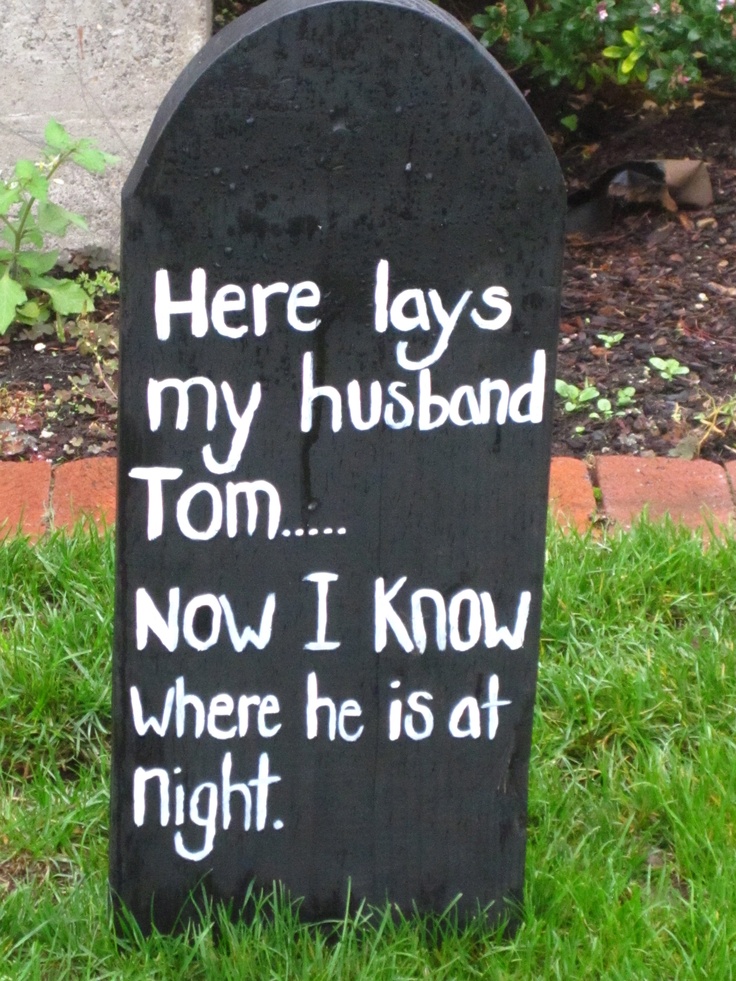 Here lays
my husband
Tom.....
Now I Know
where he is at
night.